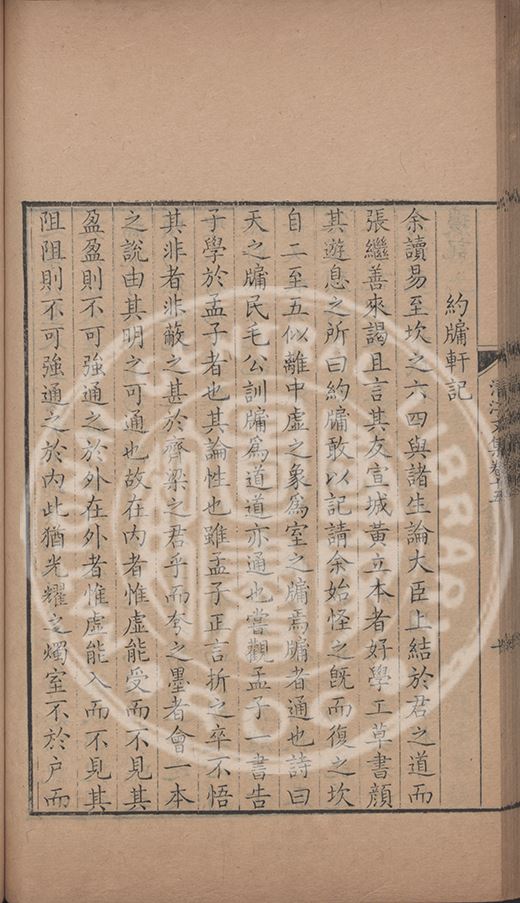 約牖軒記
余讀易至坎之六四與諸生論大臣上結於君之道而
張繼善來謁且言其友宣城黃立本者好學工草書顏
其遊息之所曰約牖敢以記請余始怪之旣而復之坎
自二至五似離中虛之象爲室之牖焉牖者通也詩曰
天之牖民毛公訓牖爲道道亦通也嘗觀孟子一書告
子學於孟子者也其論性也雖孟子正言折之卒不悟
其非者非蔽之甚於齊梁之君乎而夸之墨者會一本
之說由其明之可通也故在內者惟虛能受而不見其
盈盈則不可強通之於外在外者惟虛能入而不見其
阻阻則不可強通之於內此猶光耀之燭室不於户而